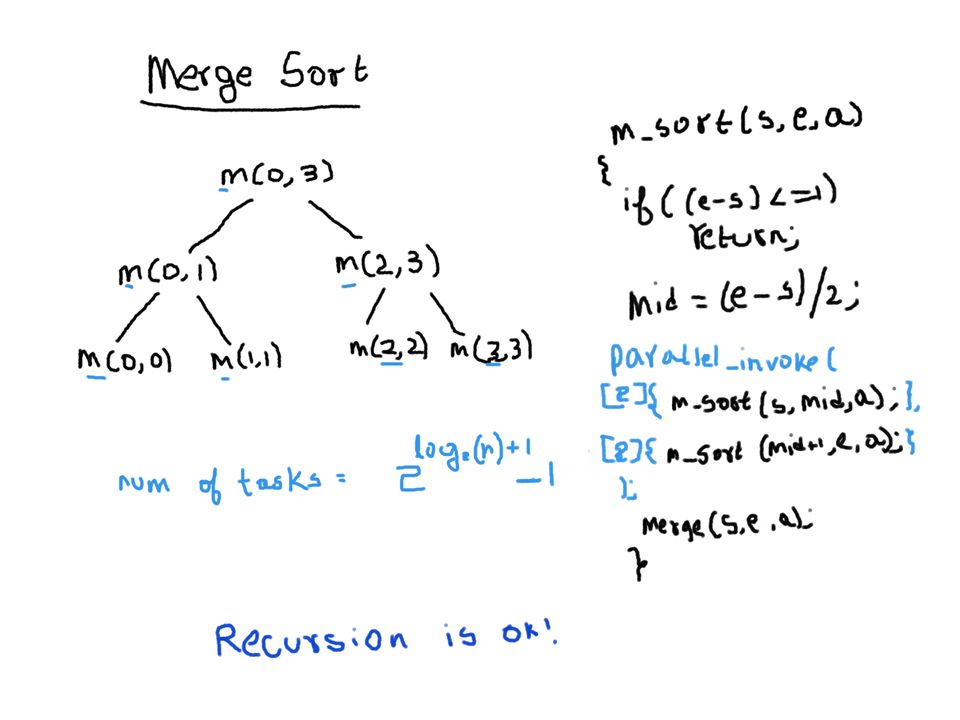 Merge Sort
m(0,3)
m(0,1) m(2,3)
m(0,0) m(1,1) m(2,2) m(3,3)
num of tasks = 2^log₂(n)+1 -1
m_sort(s,e,a)
{
if((e-s)<=1)
return;
mid = (e-s)/2;
parallel_invoke(
[&]{ m_sort(s,mid,a); },
[&]{ m_sort(mid+1,e,a); }
);
merge(s,e,a);
}
Recursion is ok!